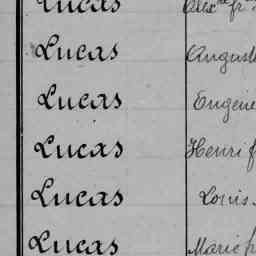 Lucas Alex
Lucas August
Lucas Eugène
Lucas Henri f
Lucas Louis
Lucas Marie